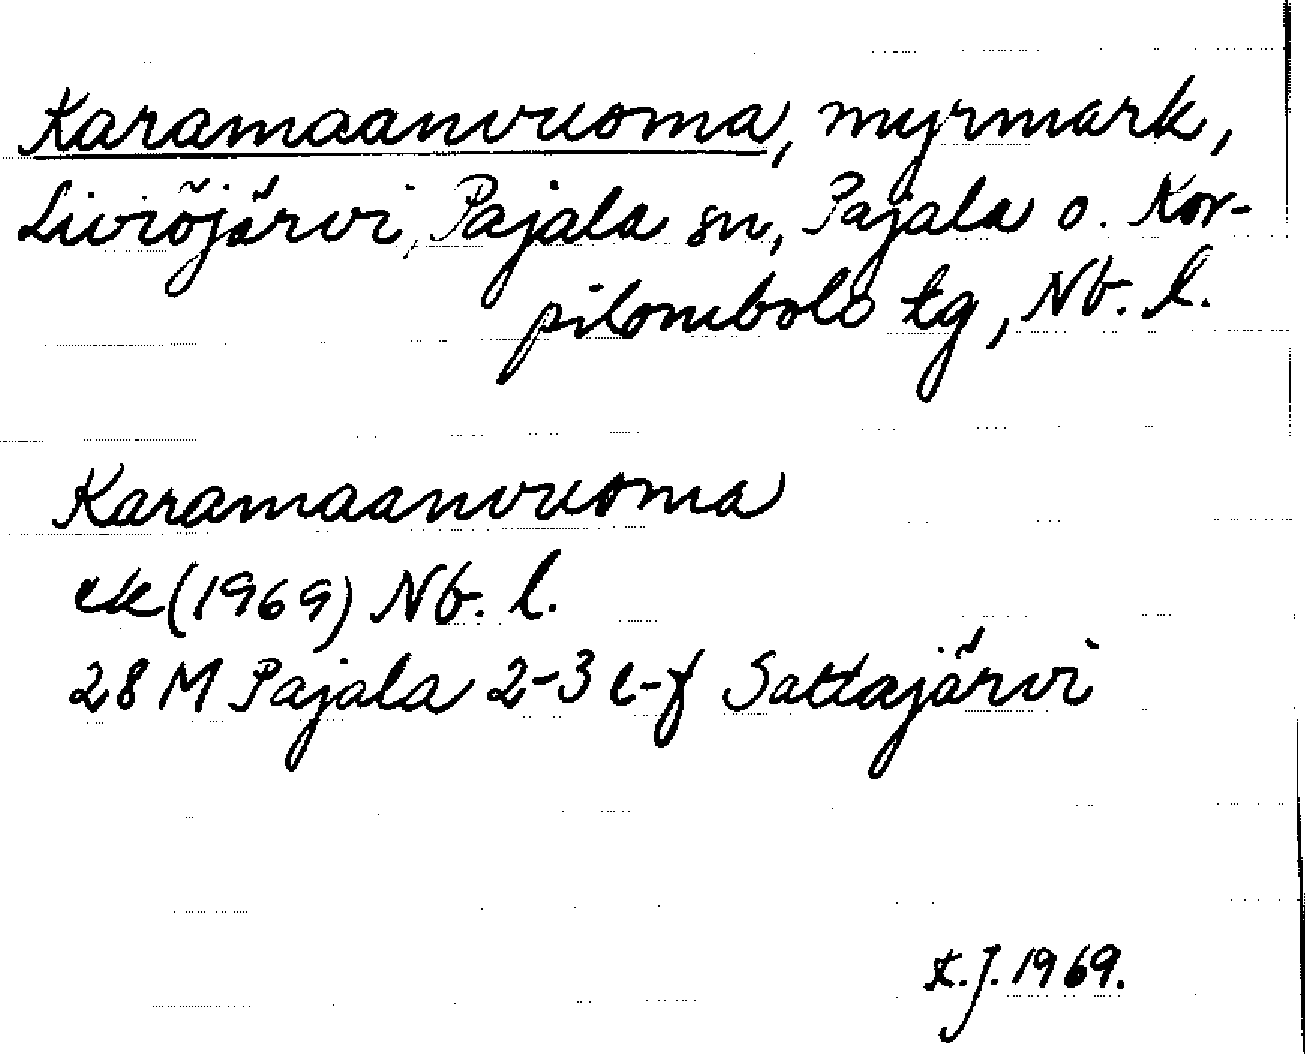 Karamaanvuoma, myrmark,
Liviöjärvi, Pajala sn, Pajala o. Kor-
pilombolo tg, Nb. l.
Karamaanvuoma
ek (1969) Nb. l.
28 M Pajala 2-3 e-f Sattajärvi
K.J. 1969.